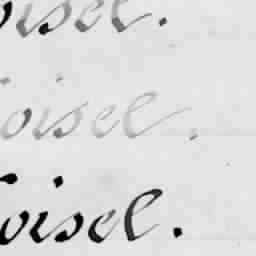 oisel.
oisel.
oisel.